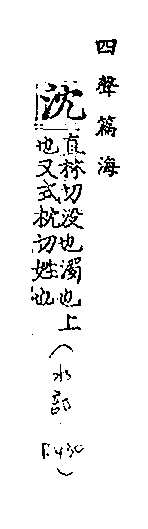 四聲篇海
沈
直林切没也濁也上
也又式枕切姓也
(水部
P.430)